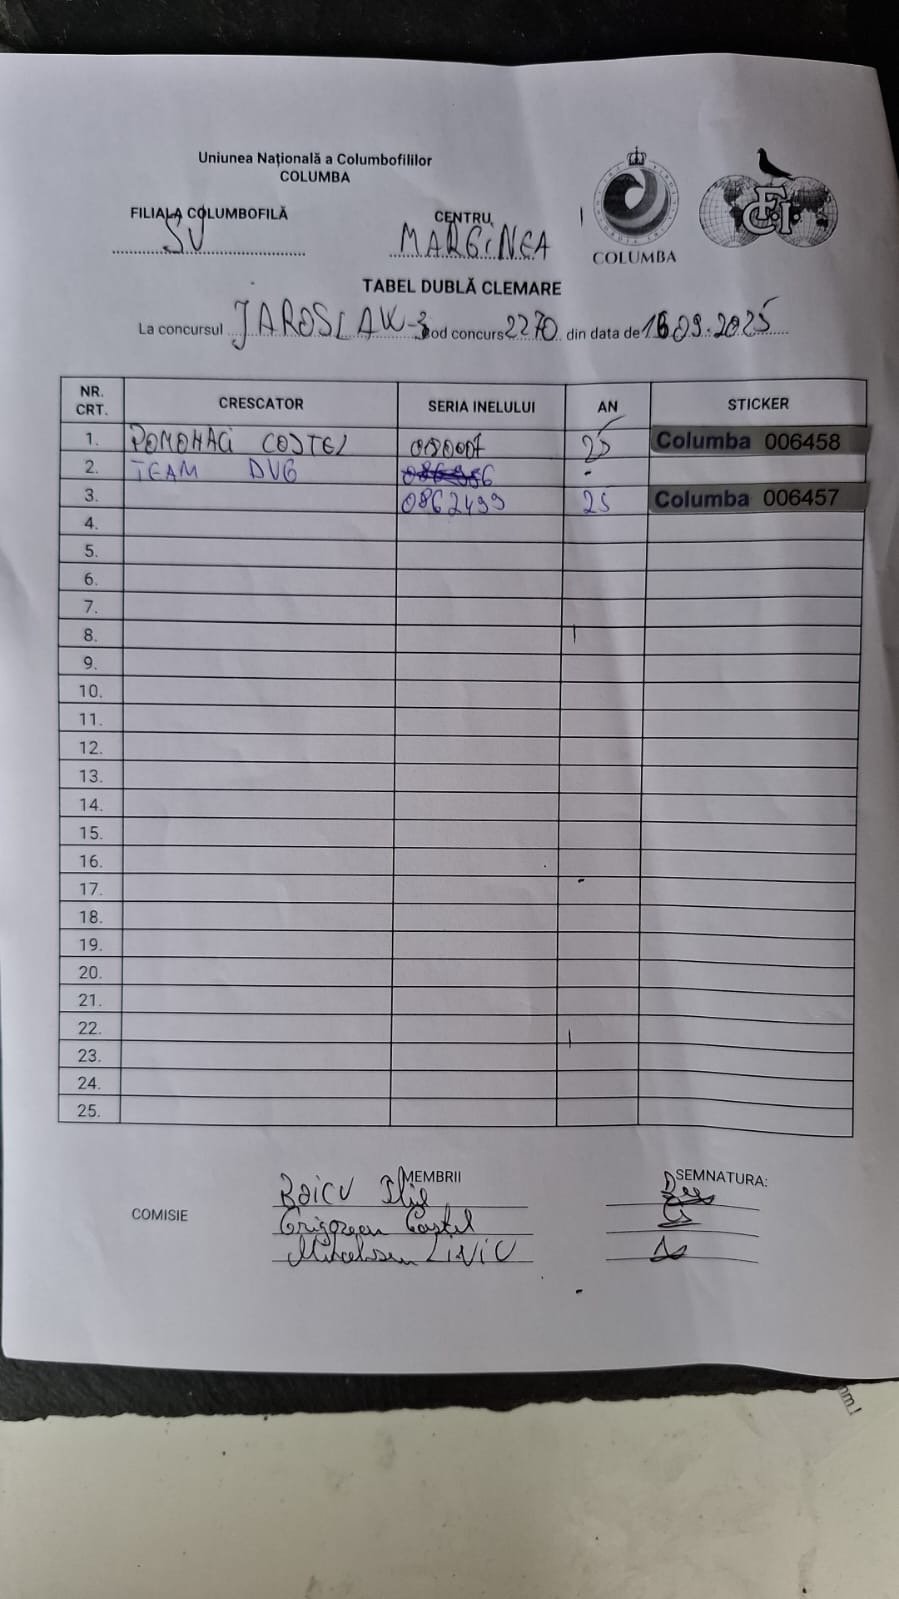 Uniunea Națională a Columbofililor
COLUMBA
FILIALA COLUMBOFILĂ
SV
CENTRU
MARGINEA
COLUMBA
F.C.I.
TABEL DUBLĂ CLEMARE
La concursul JAROSLAW-3 cod concurs 2270 din data de 16.09.2025
NR. CRT. CRESCATOR SERIA INELULUI AN STICKER
1. POMOHACI COSTEL 25 Columba 006458
2. TEAM DVG
3. 0862499 25 Columba 006457
4.
5.
6.
7.
8.
9.
10.
11.
12.
13.
14.
15.
16.
17.
18.
19.
20.
21.
22.
23.
24.
25.
MEMBRII SEMNATURA:
COMISIE
Boicu Ilie
Grigorean Costel
LIVIU